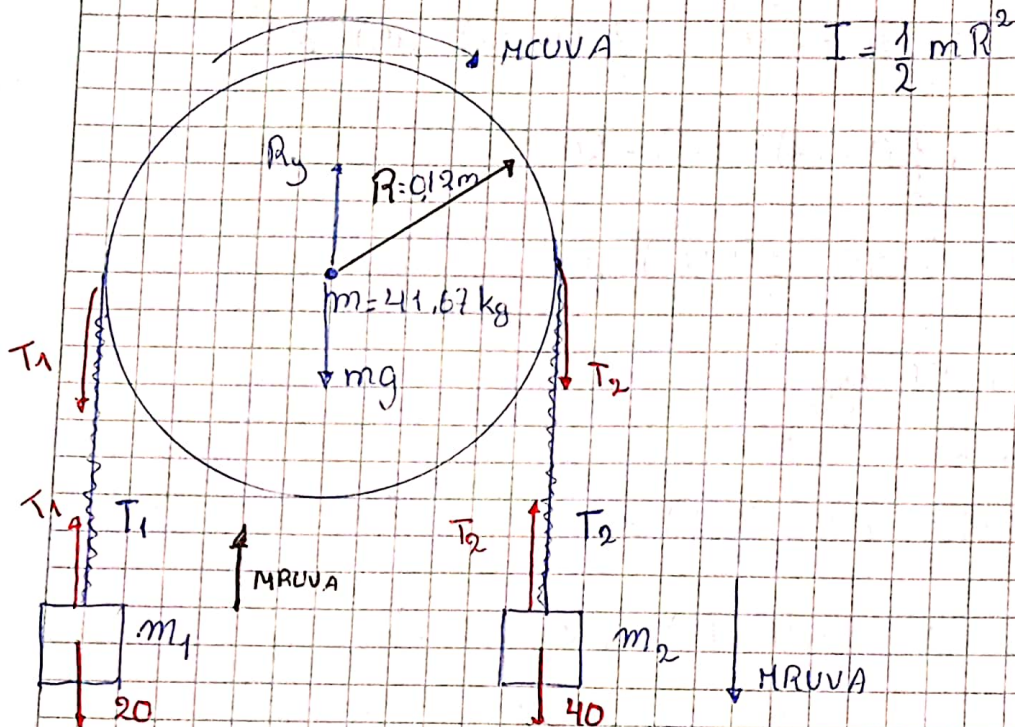 MCUVA
I = 1/2 m R²
Ry
R=0,12m
m=41,67 kg
mg
T1
T2
T1
T1
T2
T2
MRUVA
m1
m2
MRUVA
20
40